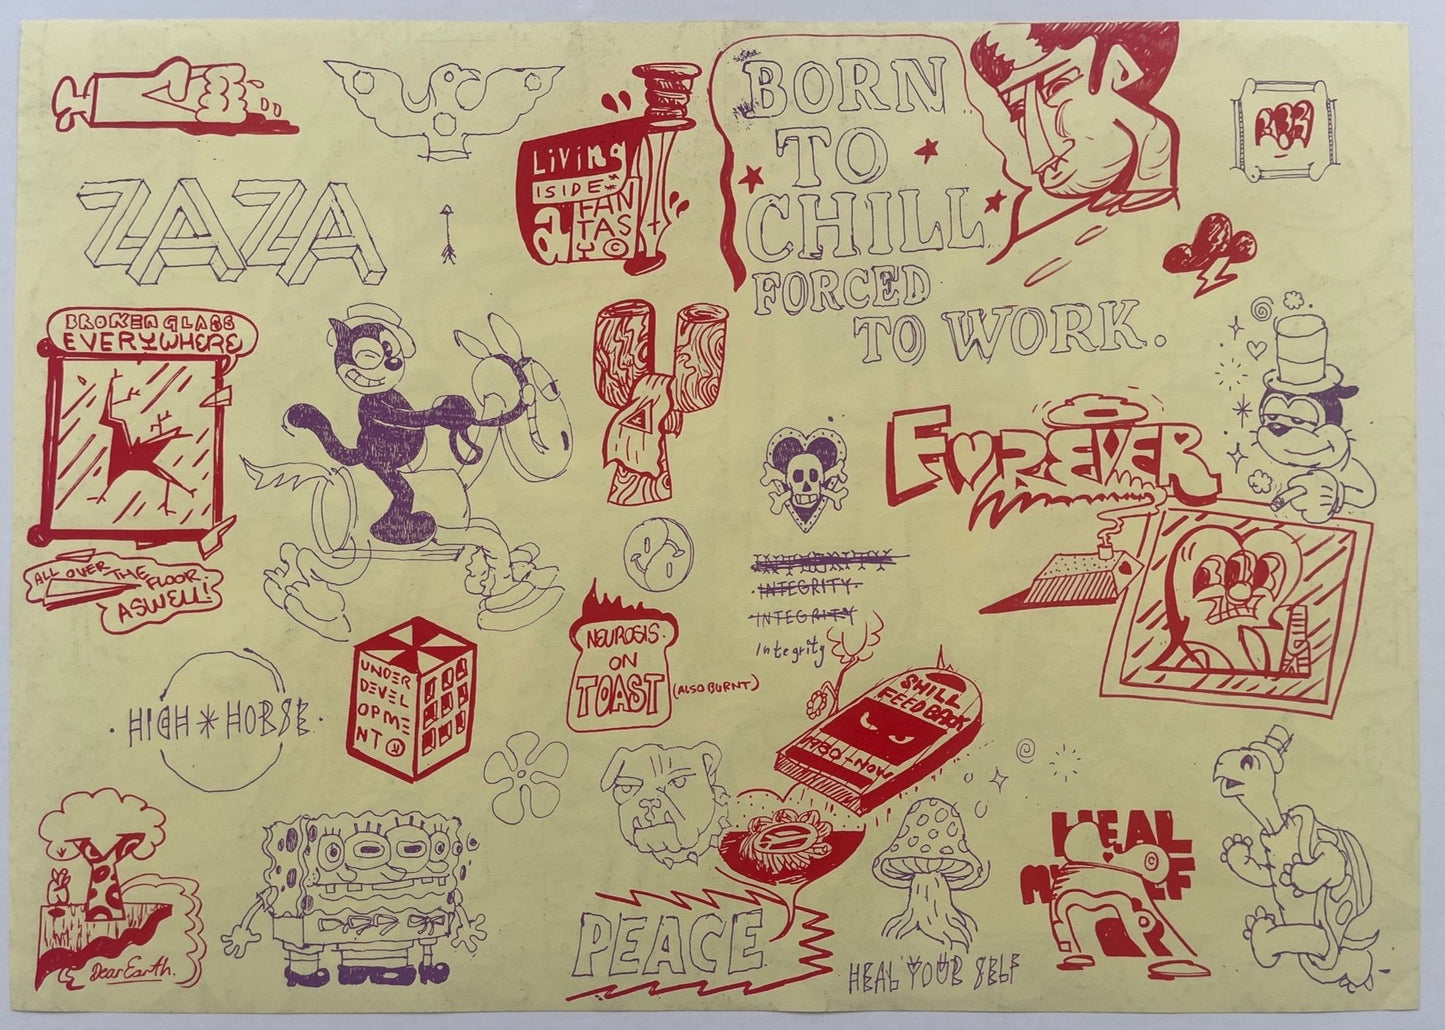 ZAZA
LiViNg
ISIDE*
a FAN
TAS
Y ©
BORN
TO
CHILL
FORCED
TO WORK.
BROKEN GLASS
EVERYWHERE
ALL OVER THE FLOOR
ASWELL!
FOREVER
INTEGRITY
INTEGRITY.
INTEGRITY
Integrity
NEUROSIS
ON
TOAST
(ALSO BURNT)
UNDER
DEVEL
OPME
NT
HIGH * HORSE
SHILL
FEEDBACK
PEACE
HEAL YOUR SELF
HEAL
Dear Earth.